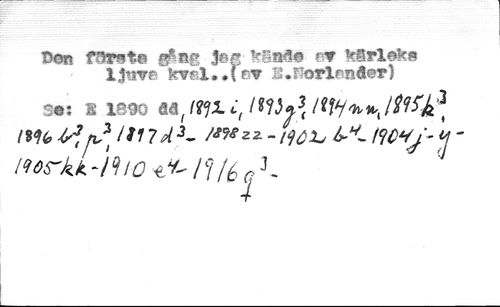 Den första gång jag kände av kärleks
ljuva kval..(av E.Norlander)
Se: E 1890 dd, 1892 i, 1893 g³, 1894 nn, 1895 k³,
1896 b³, p³, 1897 d³- 1898 zz - 1902 b⁴- 1904 j - y -
1905 kk - 1910 e⁴- 1916 q³-